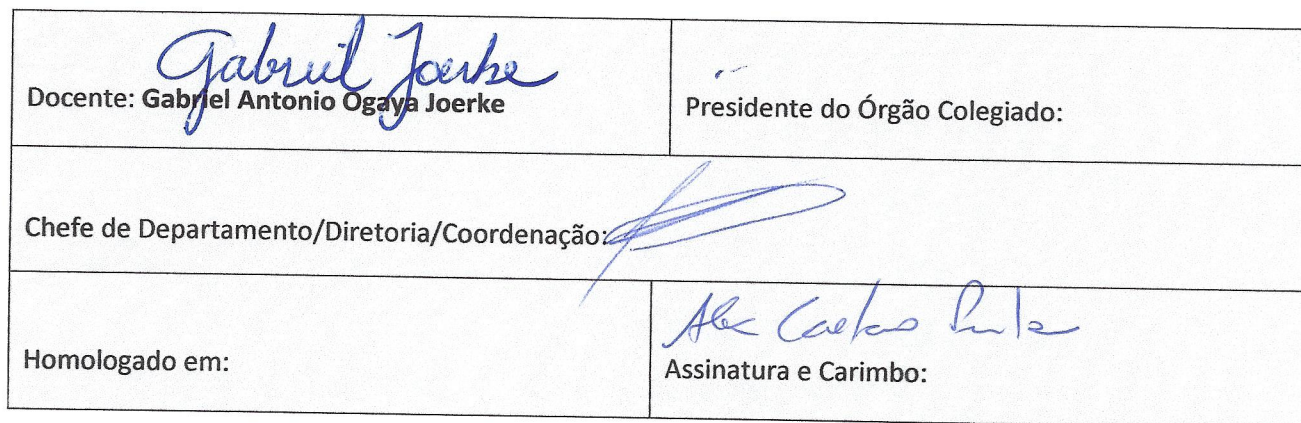 Gabriel Joerke
Docente: Gabriel Antonio Ogaya Joerke
Presidente do Órgão Colegiado:
Chefe de Departamento/Diretoria/Coordenação:
Homologado em:
Assinatura e Carimbo: